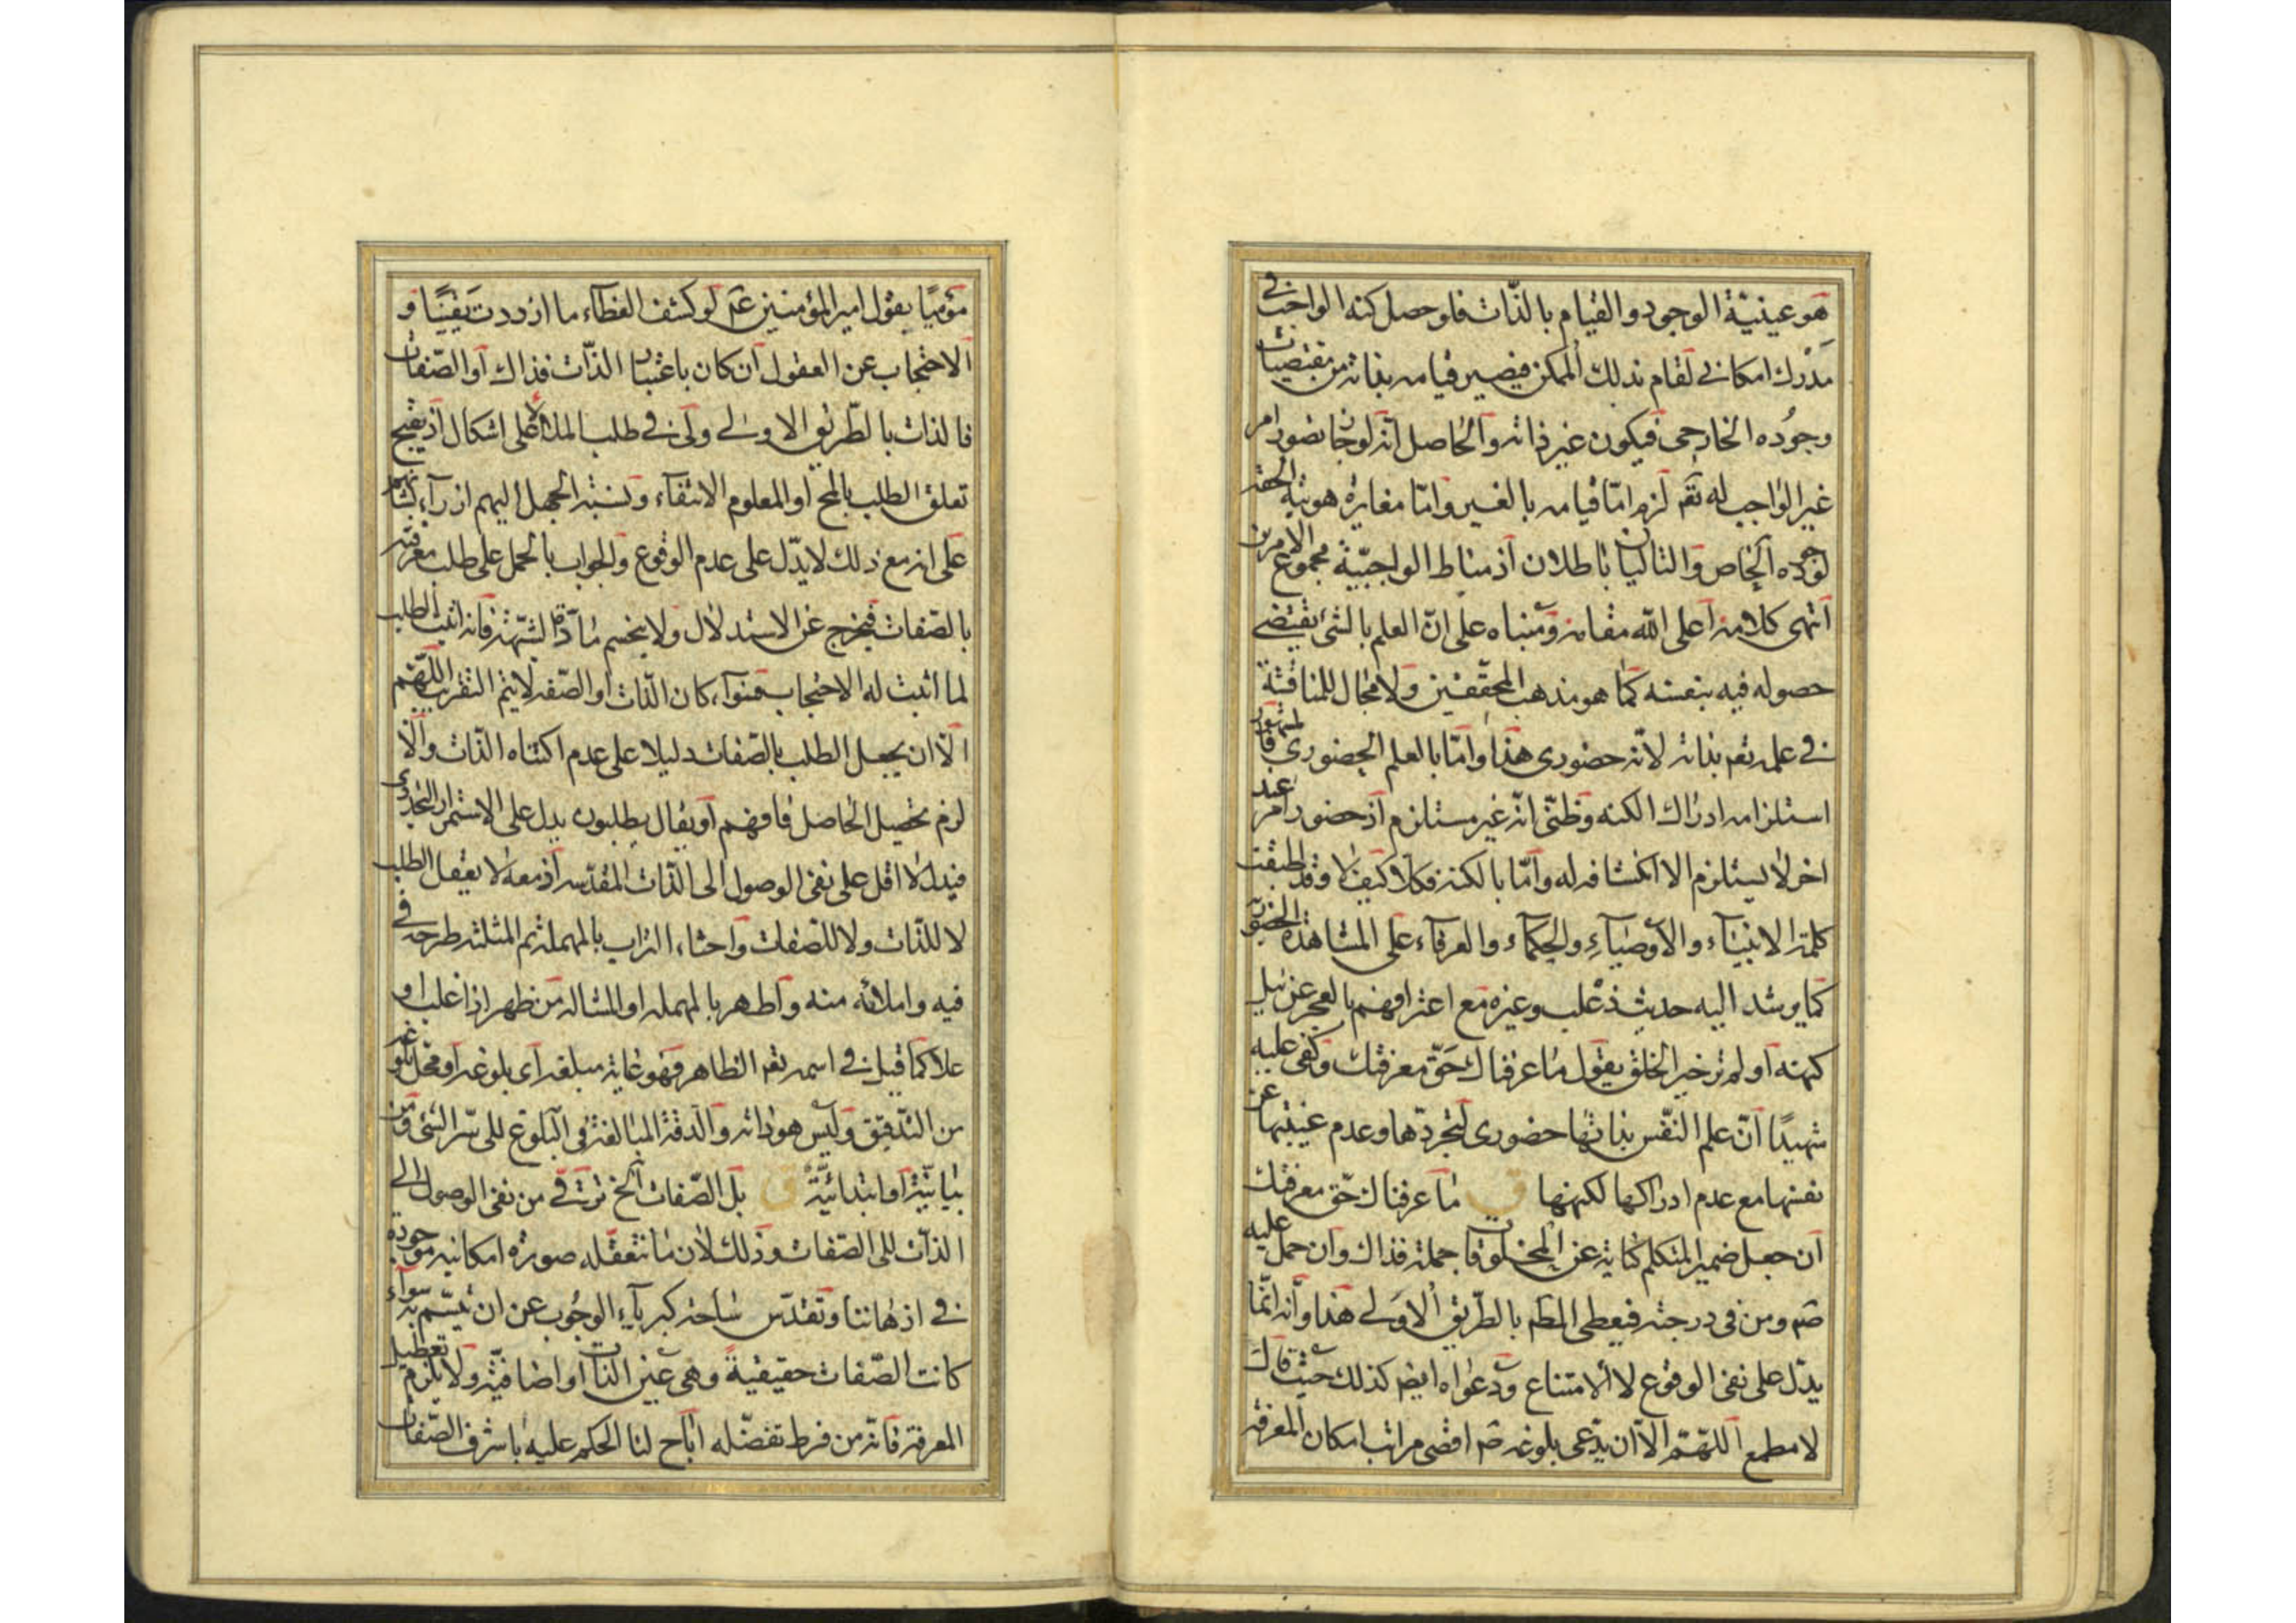 هو عينية الوجود والقيام بالذات فلو حصل كنه الواجب في
مدرك امكاني لقام بذلك الممكن فيصير قيامه بذاته من مقتضيات
وجوده الخارجي فيكون غير ذاته والحاصل انه لو جاز تصور امر
غير الواجب له تعم لزم اما قيامه بالغير واما مغايرة هويته الحقة
لوجوده الخاص والتاليان باطلان اذ مناط الواجبية مجموع الامرين
انتهى كلامه اعلى الله مقامه ومبناه على ان العلم بالشئ يقتضي
حصوله فيه بنفسه كما هو مذهب المحققين ولا مجال للمناقشة
في علمه تعم بذاته لانه حضوري هذا واما بالعلم الحضوري فالمشهور
استلزامه ادراك الكنه وظني انه غير مستلزم اذ حضور امر عند
اخر لا يستلزم الا انكشافه له واما بالكنه فكلا كيف لا وقد اطبقت
كلمة الانبياء والاوصياء والحكماء والعرفاء على المشاهدة الحضورية
كما يرشد اليه حديث ذعلب وغيره مع اعترافهم بالعجز عن نيل
كنهه اولم تر خير الخلق يقول ما عرفناك حق معرفتك وكفى عليه
شهيدا ان علم النفس بذاتها حضوري لتجردها وعدم غيبتها عن
نفسها مع عدم ادراكها لكنهها ق ما عرفناك حق معرفتك
ان جعل ضمير المتكلم كناية عن المخلوقات جملة فذاك وان حمل عليه
صم ومن في درجته فيعطى المطم بالطريق الاولى هذا وانه انما
يدل على نفي الوقوع لا الامتناع ودعواه ايضم كذلك حيث قال
لا مطمع اللهم الا ان يدعى بلوغه صم اقصى مراتب امكان المعرفة
مؤميا بقول امير المؤمنين عم لو كشف الغطاء ما ازددت يقينا و
الاحتجاب عن العقول ان كان باعتبار الذات فذاك او الصفات
فالذات بالطريق الاولى ولكن في طلب الملا الاعلى اشكال اذ يقبح
تعلق الطلب بالمح او المعلوم الانتفاء ونسبة الجهل اليهم ازراء بشانهم
على انه مع ذلك لا يدل على عدم الوقوع والجواب بالحمل على طلب معرفته
بالصفات فيخرج عن الاستدلال ولا ينحسم مادة الشبهة فانه اثبت الطلب
لما اثبت له الاحتجاب فسواء كان الذات او الصفة لا يتم التقريب اللهم
الا ان يجعل الطلب بالصفات دليلا على عدم اكتناه الذات والا
لزم تحصيل الحاصل فافهم او يقال يطلبون يدل على الاستمرار التجددي
فيدل لا اقل على نفي الوصول الى الذات المقدسة اذ معه لا يعقل الطلب
لا للذات ولا للصفات واحثاء التراب بالمهملة ثم المثلثة طرحه في
فيه واملائه منه واطهر بالمهملة او المشالة من ظهر اذا غلب او
علا كما قيل في اسمه تعم الظاهر فهو غاية مبلغه اي بلوغه او محل بلوغه
من التدقيق وليس هو ذاته والدقة المبالغة في البلوغ الى سر الشئ ومن
بيانية او ابتدائية ق بل الصفات الخ ترق من نفي الوصول الى
الذات الى الصفات وذلك لان ما نتعقله صورة امكانية موجودة
في اذهاننا وتقدس ساحة كبرياء الوجوب عن ان يتسم به سواء
كانت الصفات حقيقية وهي عين الذات او اضافية ولا يلزم تعطيل
المعرفة فانه من فرط تفضله اباح لنا الحكم عليه باشرف الصفات